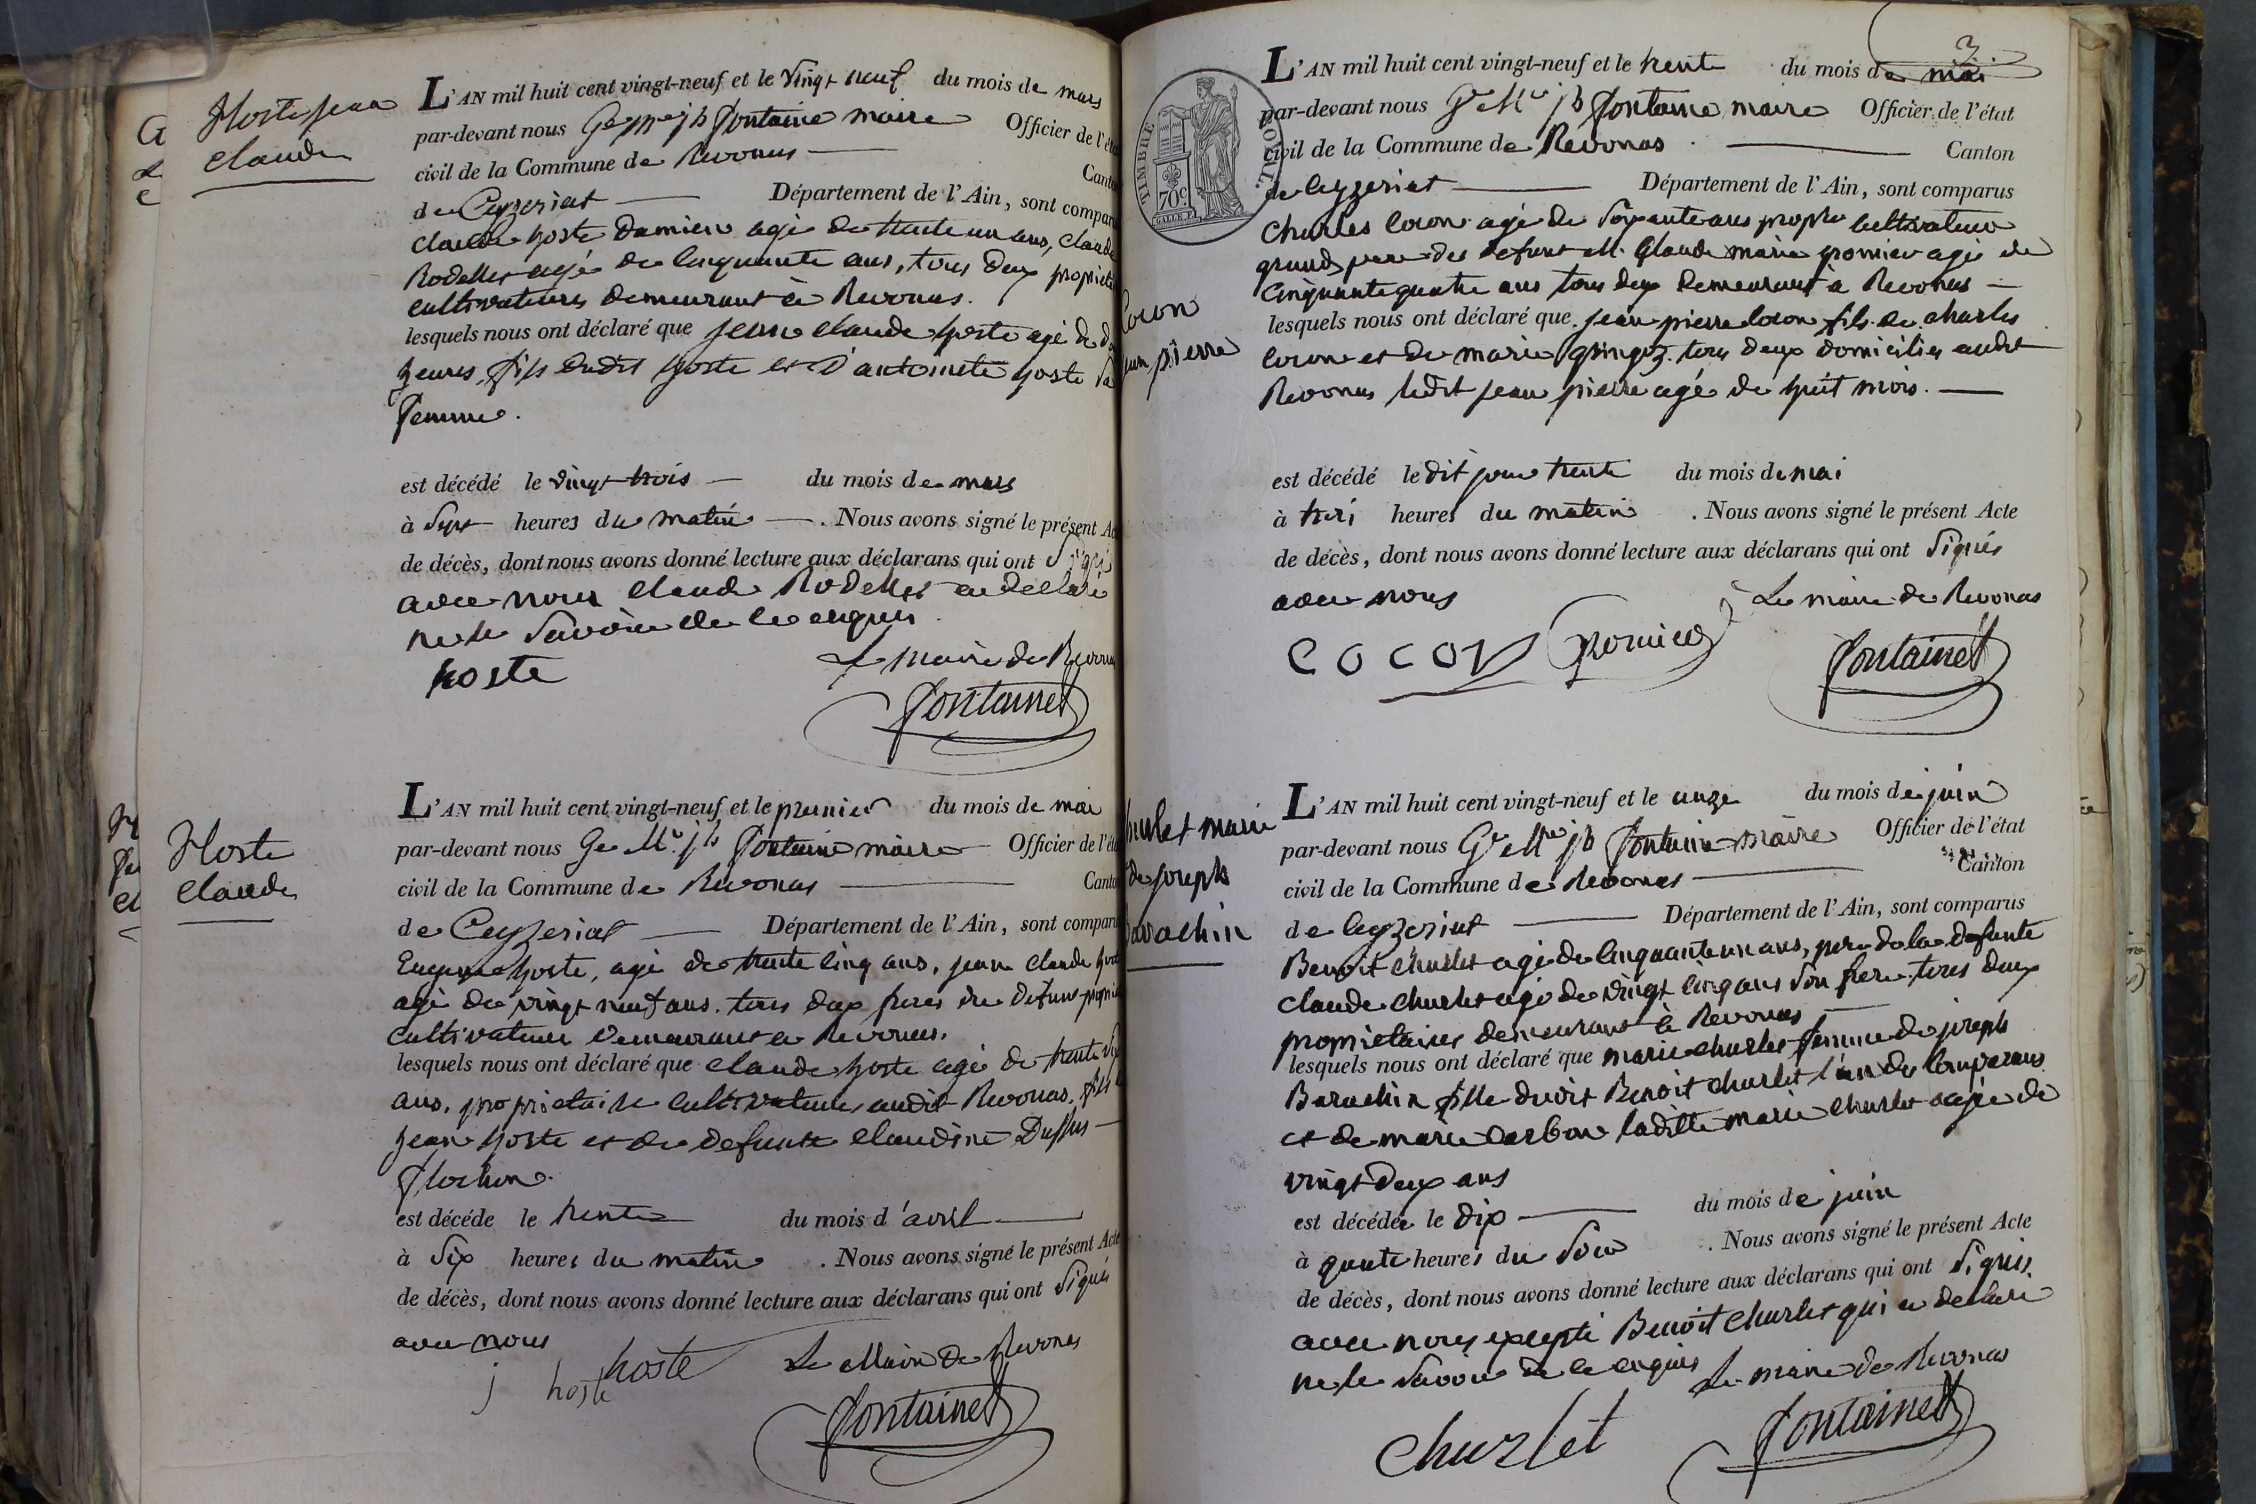 Hoste jean
Claude
L'AN mil huit cent vingt-neuf et le vingt neuf du mois de mars
par-devant nous Ge Me jh fontaine maire Officier de l'éta
civil de la Commune de Revonas Canto
de Ceyzeriat Département de l'Ain, sont compar
Claude hoste Damien agé de trente un ans, Claude
Rodellet agé de Cinquante ans, tous deux propriet
cultivateurs demeurant à Revonas.
lesquels nous ont déclaré que jean claude hoste agé de
heures, fils dudit hoste et d'antoinette hoste sa
femme.
est décédé le vingt trois du mois de mars
à Sept heures du matin. Nous avons signé le présent Ac
de décès, dont nous avons donné lecture aux déclarans qui ont signé
avec nous Claude Rodellet a déclaré
ne le savoir de ce enquis
Le maire de Revonas
hoste
fontaine
Hoste
Claude
L'AN mil huit cent vingt-neuf et le premier du mois de mai
par-devant nous Ge Me jh fontaine maire Officier de l'éta
civil de la Commune de Revonas Canto
de Ceyzeriat Département de l'Ain, sont comparu
hoste, agé de trente cinq ans, jean Claude hoste
agé de vingt neuf ans. tous deux freres du defunt
Cultivateurs demeurant a Revonas.
lesquels nous ont déclaré que Claude hoste agé de trente
ans, proprietaire cultivateur audit Revonas, fils
jean hoste et de defunte Claudine
est décédé le trente du mois d'avril
à Six heures du matin. Nous avons signé le présent Acte
de décès, dont nous avons donné lecture aux déclarans qui ont signés
avec nous
Le Maire de Revonas
j hoste hoste
fontaine
3
TIMBRE ROYAL.
70c
L'AN mil huit cent vingt-neuf et le trente du mois de mai
par-devant nous Ge Me jh fontaine maire Officier de l'état
civil de la Commune de Revonas Canton
de Ceyzeriat Département de l'Ain, sont comparus
Charles Cocon agé de Soixante ans propre cultivateur
grand pere du defunt et Claude marie pomier agé de
Cinquante quatre ans tous deux demeurant à Revonas
Cocon
jean pierre
lesquels nous ont déclaré que jean pierre Cocon fils de charles
Cocon et de marie tous deux domiciliés audit
Revonas ledit jean pierre agé de huit mois.
est décédé le dit jour trente du mois de mai
à trois heures du matin. Nous avons signé le présent Acte
de décès, dont nous avons donné lecture aux déclarans qui ont signés
avec nous
Le maire de Revonas
COCON pomier
fontaine
L'AN mil huit cent vingt-neuf et le onze du mois de juin
Churlet marie
de joseph
Barachin
par-devant nous Ge Me jh fontaine maire Officier de l'état
civil de la Commune de Revonas Canton
de Ceyzeriat Département de l'Ain, sont comparus
Benoit Churlet agé de Cinquante un ans, pere de la defunte
Claude Churlet agé de vingt cinq ans son frere tous deux
proprietaires demeurant à Revonas
lesquels nous ont déclaré que marie churlet femme de joseph
Barachin fille dudit Benoit Churlet l'un des Comparans
et de marie Carbon laditte marie Churlet agée de
vingt deux ans
est décédée le dix du mois de juin
à quatre heures du Soir. Nous avons signé le présent Acte
de décès, dont nous avons donné lecture aux déclarans qui ont signés
avec nous excepté Benoit Churlet qui a declaré
ne le savoir de ce enquis Le maire de Revonas
Churlet
fontaine